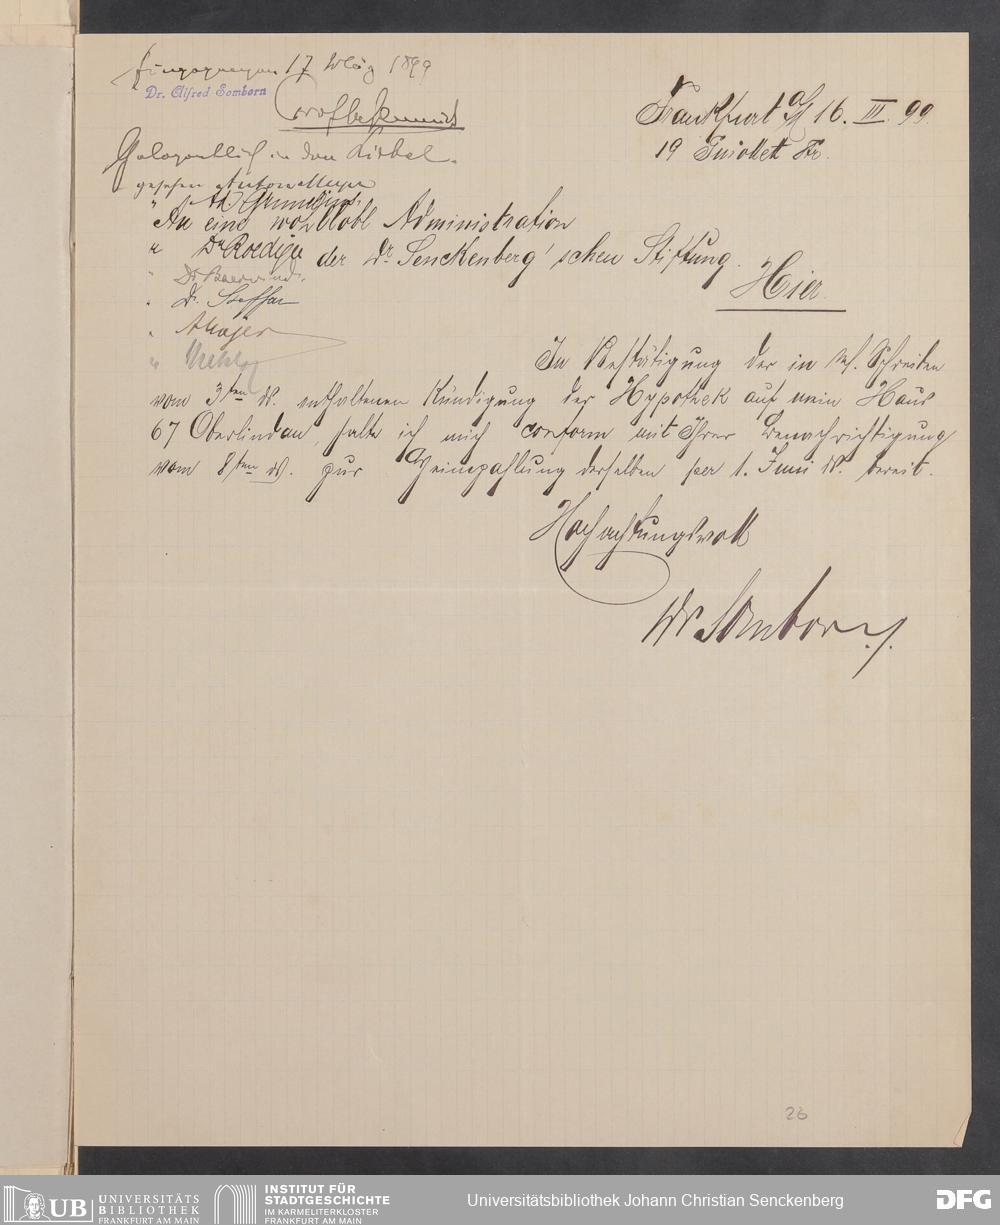 Eingegangen 17 März 1899
Dr. Alfred Somborn
Frankfurt a/M 16. III. 99.
19 Guiollett Str.
gesehen
" Ad
An eine wohllöbl Administration
" Dr Roediger
der Dr. Senckenberg'schen Stiftung.
Hier.
" Dr.
" Dr. Steffan
" A Majer
"
In Bestätigung der in Ihr. Schreiben
vom 3ten ds. enthaltenen Kündigung der Hypothek auf mein Haus
67 Oberlindau, halte ich mich conform mit Ihrer Benachrichtigung
vom 8ten ds. zur Heimzahlung derselben per 1. Juni ds. bereit.
Hochachtungsvoll
Dr Somborn
26
UB UNIVERSITÄTS
BIBLIOTHEK
FRANKFURT AM MAIN
INSTITUT FÜR
STADTGESCHICHTE
IM KARMELITERKLOSTER
FRANKFURT AM MAIN
Universitätsbibliothek Johann Christian Senckenberg
DFG